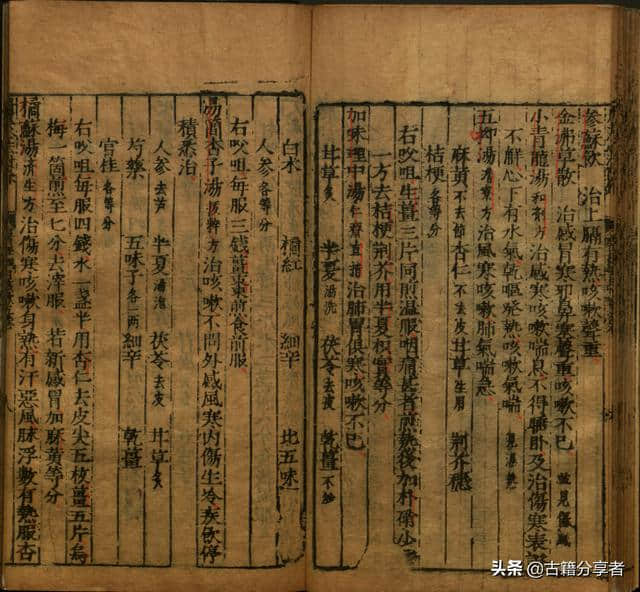 參蘇飲 治上膈有熱咳嗽聲重
金沸草散 治感冒寒邪鼻塞聲重咳嗽不已 並見傷風
小青龍湯 和劑方 治感寒咳嗽喘息不得睡臥及治傷寒表
不解心下有水氣乾嘔發熱咳嗽氣喘
五拗湯 澹寮方 治風寒咳嗽肺氣喘急
麻黃不去節 杏仁不去皮 甘草生用 荊芥穗
桔梗各等分
右㕮咀生薑三片同煎溫服咽痛甚者煎熟後加朴硝少
一方去桔梗荊芥用半夏枳實等分
加味理中湯 仁齋直指 治肺胃俱寒咳嗽不已
甘草炙 半夏湯洗 茯苓去皮 乾薑不炒
白朮 橘紅 細辛 北五味
人參各等分
右㕮咀每服三錢薑棗煎食前服
易簡杏子湯 拔粹方 治咳嗽不問外感風寒內傷生冷痰飲停
積悉治
人參去芦 半夏湯泡 茯苓去皮 甘草炙
芍藥 五味子各一兩 細辛 乾薑
官桂各等分
右㕮咀每服四錢水一盞半用杏仁去皮尖五枚薑五片烏
梅一箇煎至七分去滓服 若新感冒加麻黃等分
橘蘇湯 濟生方 治傷寒咳嗽身熱有汗惡風脉浮數有熱服杏
头条 @古籍分享者